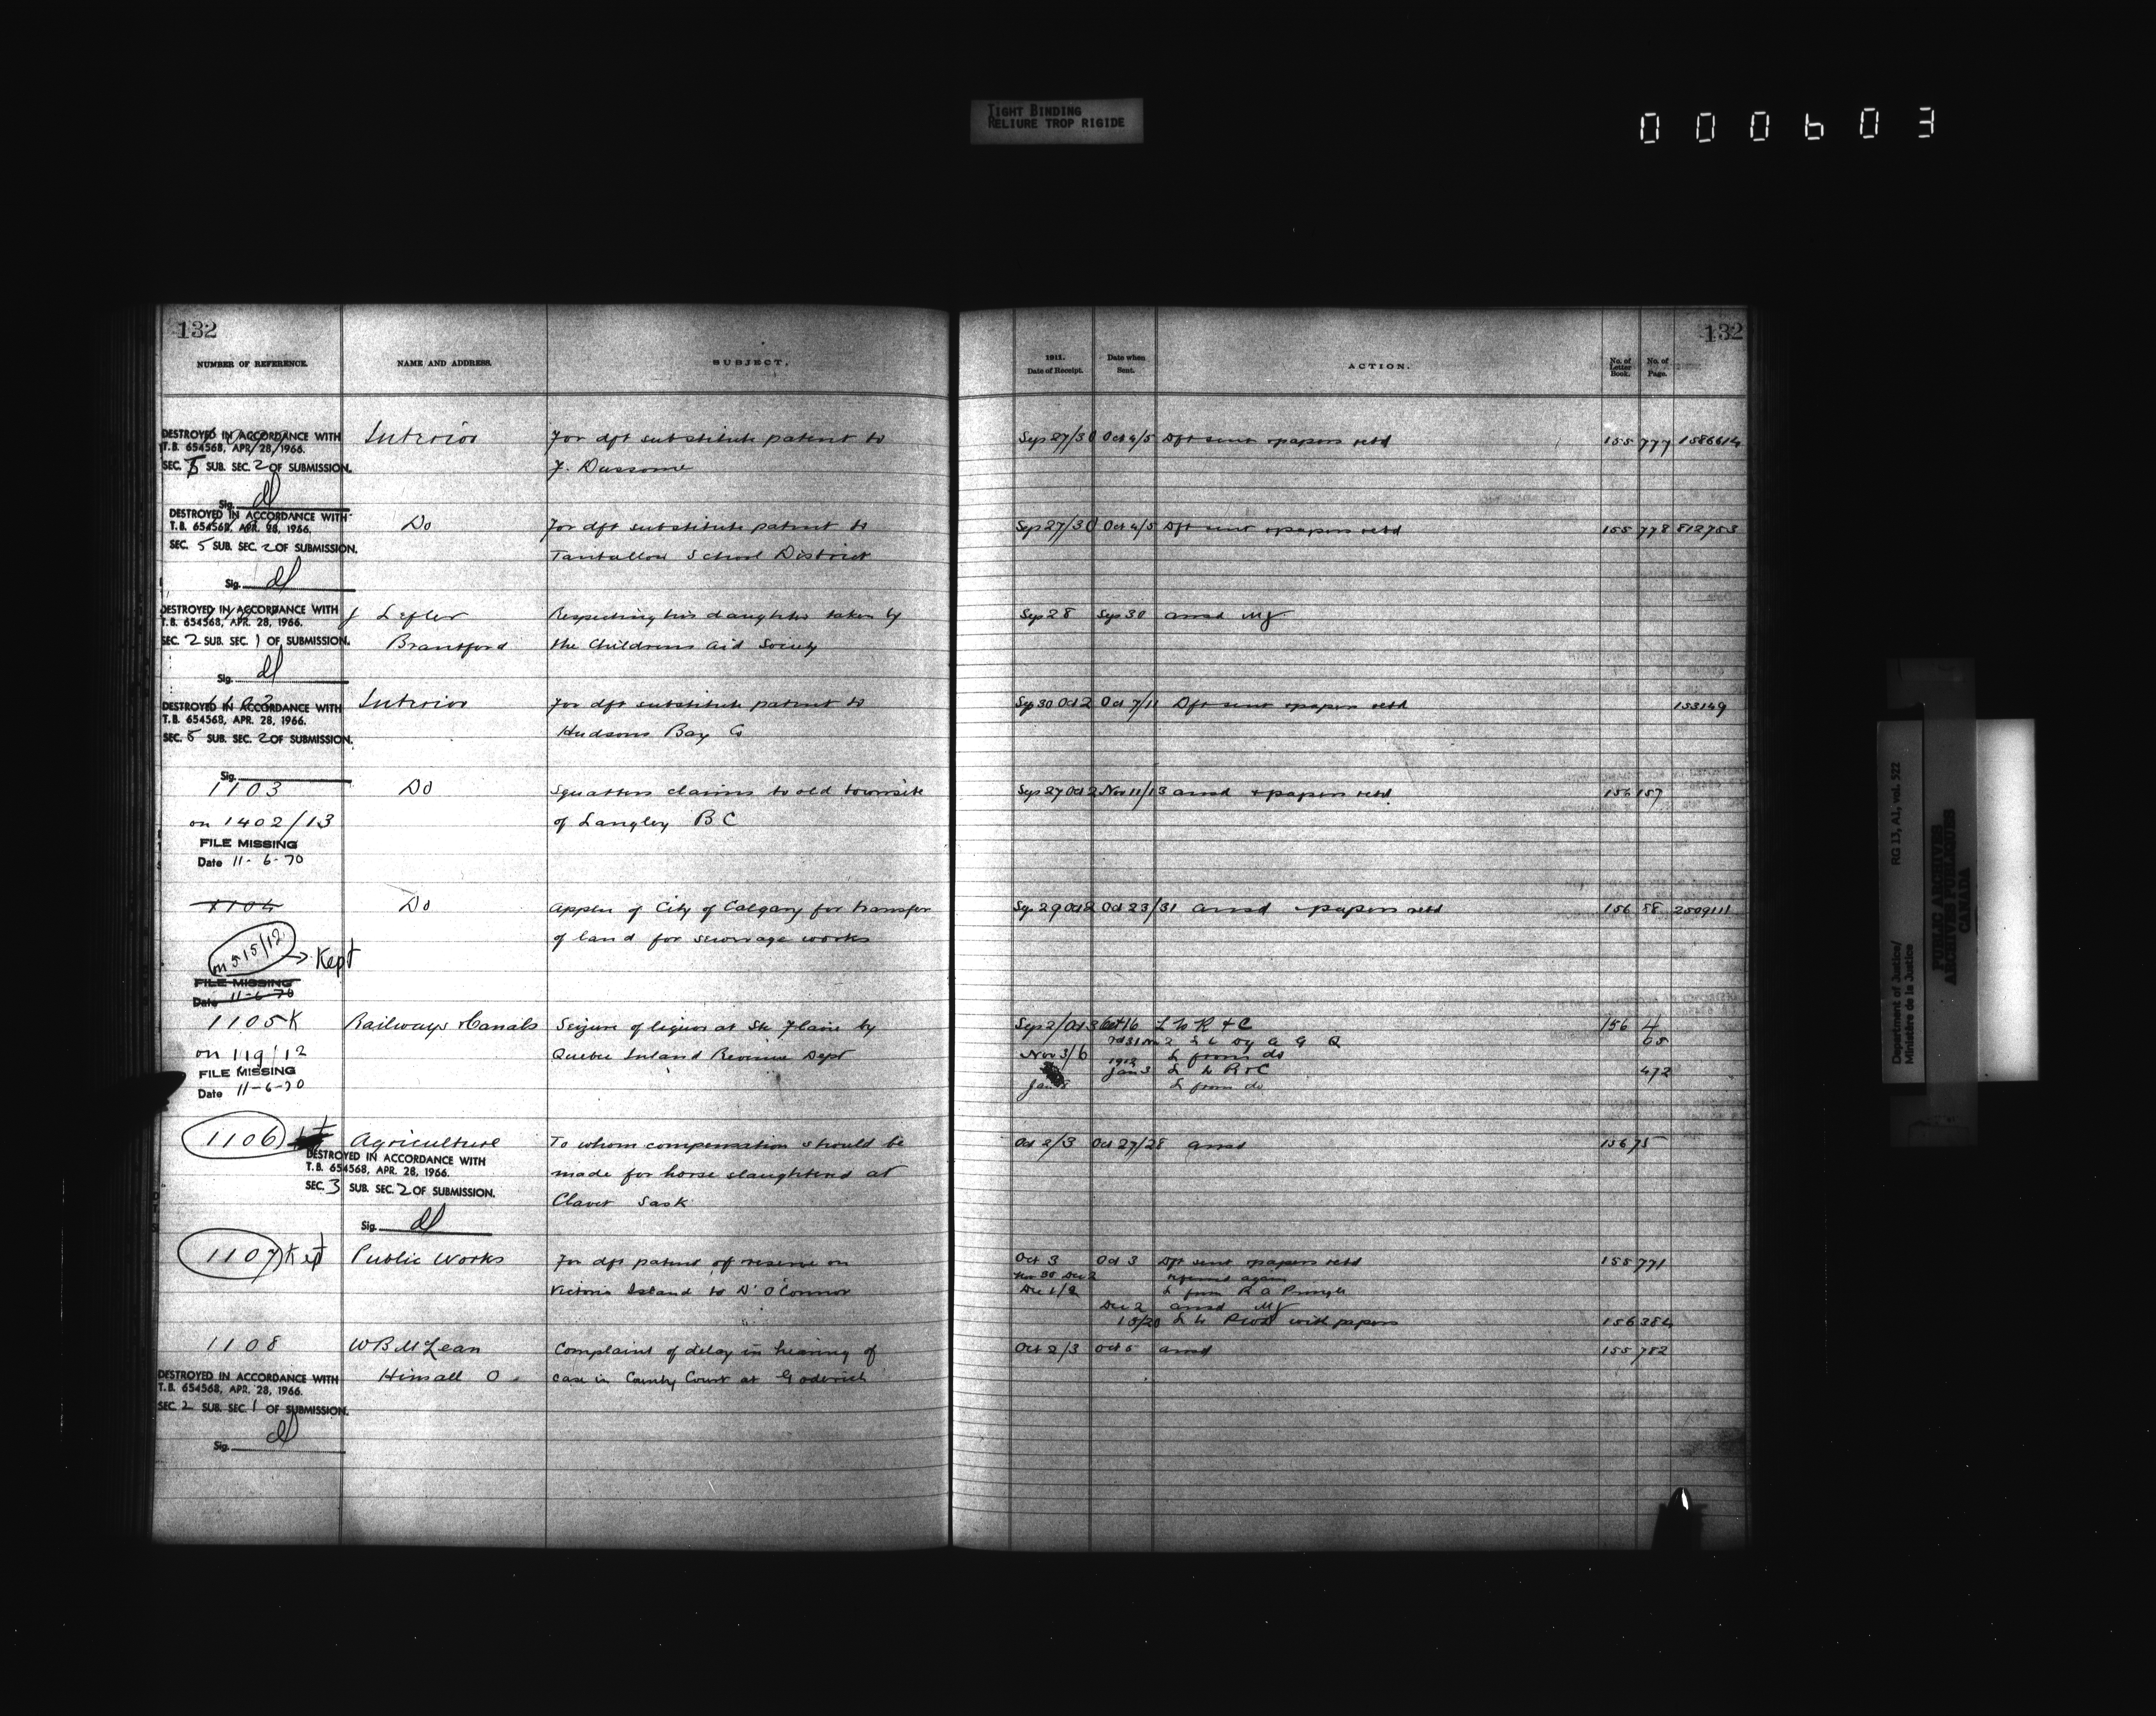 TIGHT BINDING
RELIURE TROP RIGIDE
000603
132
NUMBER OF REFERENCE.
NAME AND ADDRESS.
SUBJECT.
1911.
Date of Receipt.
Date when
Sent.
ACTION.
No. of
Letter
Book.
No. of
Page.
132
DESTROYED IN ACCORDANCE WITH
T.B. 654568, APR. 28, 1966.
SEC. 5 SUB. SEC. 2 OF SUBMISSION.
Sig.
Interior
For dft substitute patent to
J. Dussome
Sep 27/30 Oct 4/5 Dft sent & papers retd 155 777 1586614
DESTROYED IN ACCORDANCE WITH
T.B. 654568, APR. 28, 1966.
SEC. 5 SUB. SEC. 2 OF SUBMISSION.
Sig.
Do
For dft substitute patent to
Tantallon School District
Sep 27/30 Oct 4/5 Dft sent & papers retd 155 778 812753
DESTROYED IN ACCORDANCE WITH
T.B. 654568, APR. 28, 1966.
SEC. 2 SUB. SEC. 1 OF SUBMISSION.
Sig.
J Lefler
Brantford
Respecting his daughter taken by
the Childrens Aid Society
Sep 28 Sep 30 ansd MJ
1102
DESTROYED IN ACCORDANCE WITH
T.B. 654568, APR. 28, 1966.
SEC. 5 SUB. SEC. 2 OF SUBMISSION.
Sig.
Interior
For dft substitute patent to
Hudsons Bay Co
Sep 30 Oct 2 Oct 7/11 Dft sent & papers retd 153149
1103
on 1402/13
FILE MISSING
Date 11-6-70
Do
Squatters claims to old townsite
of Langley B C
Sep 27 Oct 2 Nov 11/13 ansd & papers retd 156 157
1104
on 515/12 → Kept
FILE MISSING
Date 11-6-70
Do
Appln of City of Calgary for transfer
of land for sewerage works
Sep 29 Oct 2 Oct 23/31 ansd & papers retd 156 58 2509111
1105 K
on 119/12
FILE MISSING
Date 11-6-70
Railways & Canals
Seizure of liquor at Ste Flavie by
Quebec Inland Revenue Dept
Sep 2/Oct 3 Oct 16 L to R & C 156 4
Oct 31 Nov 2 L to Dy A G Q 65
Nov 3/6 L from do
1912
Jan 3 L to R & C 472
Jan 8 L from do
1106
Agriculture
DESTROYED IN ACCORDANCE WITH
T.B. 654568, APR. 28, 1966.
SEC. 3 SUB. SEC. 2 OF SUBMISSION.
Sig.
To whom compensation should be
made for horse slaughtered at
Clavet Sask
Oct 2/3 Oct 27/28 ansd 156 75
1107 Kept
Public Works
For dft patent of reserve on
Victoria Island to D. O'Connor
Oct 3 Oct 3 Dft sent & papers retd 155 771
Nov 30 Dec 2 referred again
Dec 1/2 L from R A Pringle
Dec 2 ansd MJ
15/20 L to PWD with papers 156 384
1108
DESTROYED IN ACCORDANCE WITH
T.B. 654568, APR. 28, 1966.
SEC. 2 SUB. SEC. 1 OF SUBMISSION.
Sig.
W B McLean
Hinsall O.
Complaint of delay in hearing of
case in County Court at Goderich
Oct 2/3 Oct 5 ansd 155 782
Department of Justice/
Ministère de la Justice
RG 13, A1, vol. 522
PUBLIC ARCHIVES
ARCHIVES PUBLIQUES
CANADA